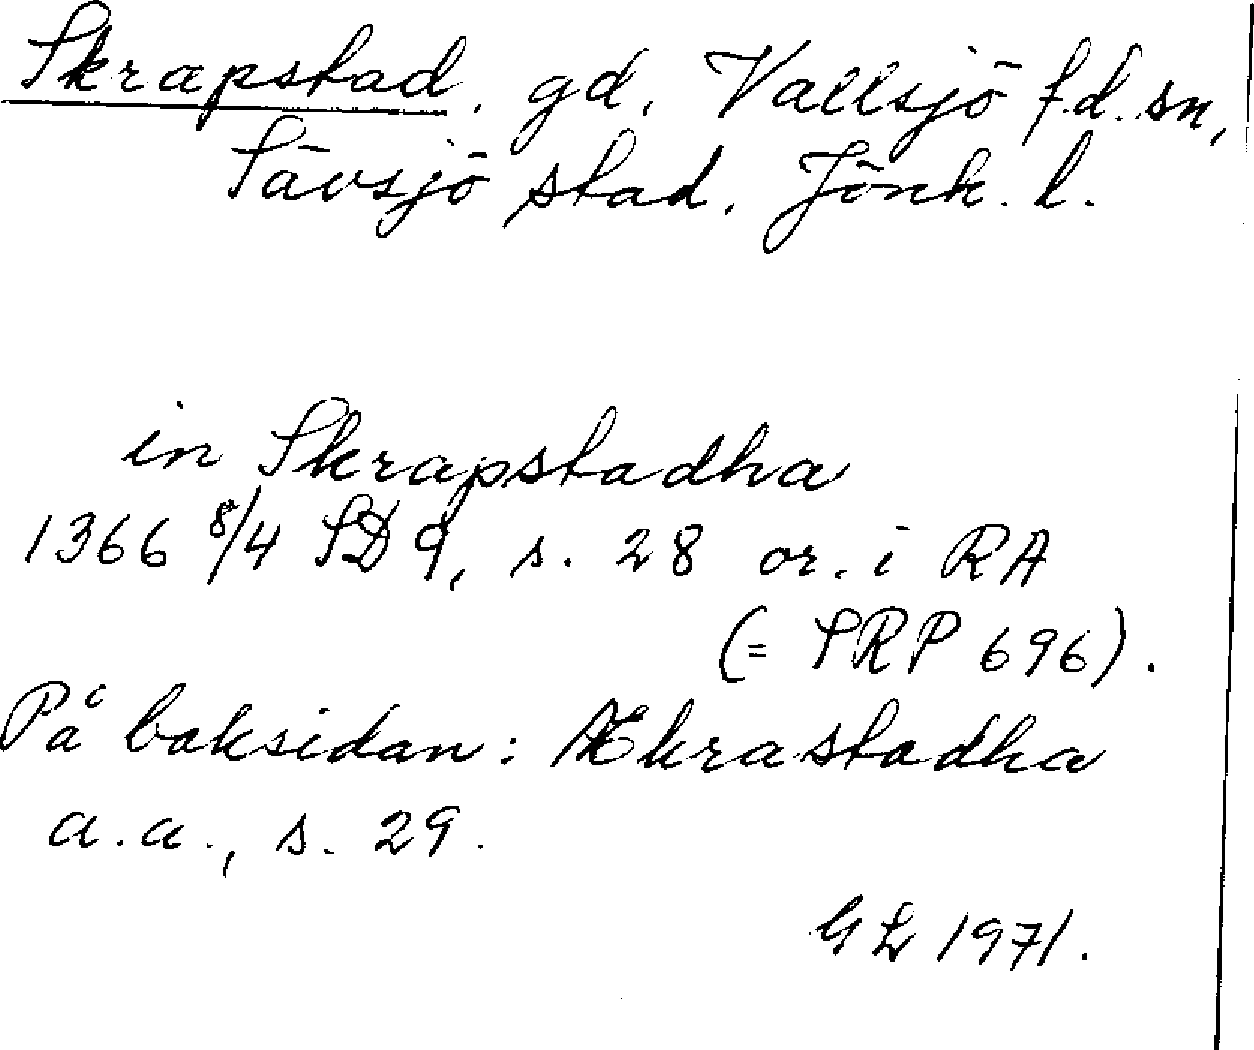 Skrapstad. gd. Vallsjö f.d. sn,
Sävsjö stad. Jönk. l.
in Skrapstadha
1366 8/4 SD 9, s. 28 or. i RA
(= SRP 696).
På baksidan: Ækrastadha
a.a., s. 29.
GL 1971.